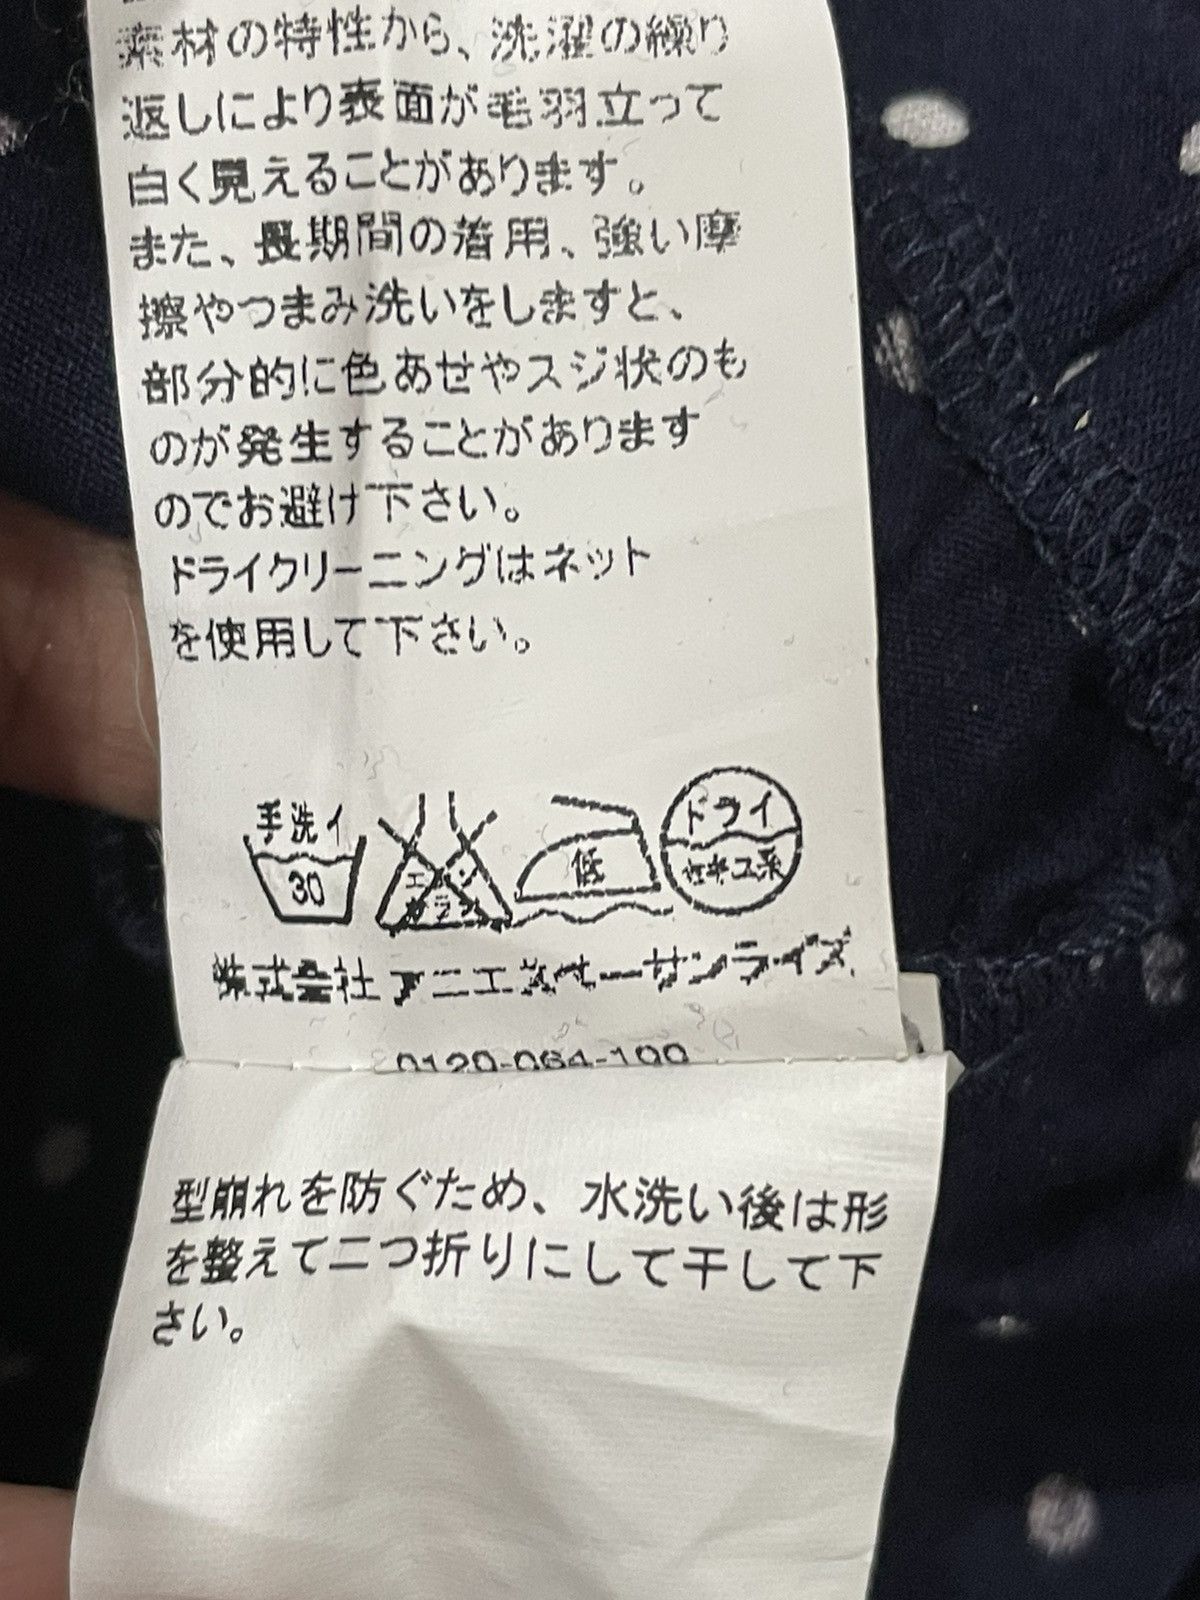 素材の特性から、洗濯の繰り
返しにより表面が毛羽立って
白く見えることがあります。
また、長期間の着用、強い摩
擦やつまみ洗いをしますと、
部分的に色あせやスジ状のも
のが発生することがあります
のでお避け下さい。
ドライクリーニングはネット
を使用して下さい。
手洗イ
30
エンソ
サラシ
低
ドライ
セキユ系
株式会社 アニエスベーサンライズ
0120-064-100
型崩れを防ぐため、水洗い後は形
を整えて二つ折りにして干して下
さい。